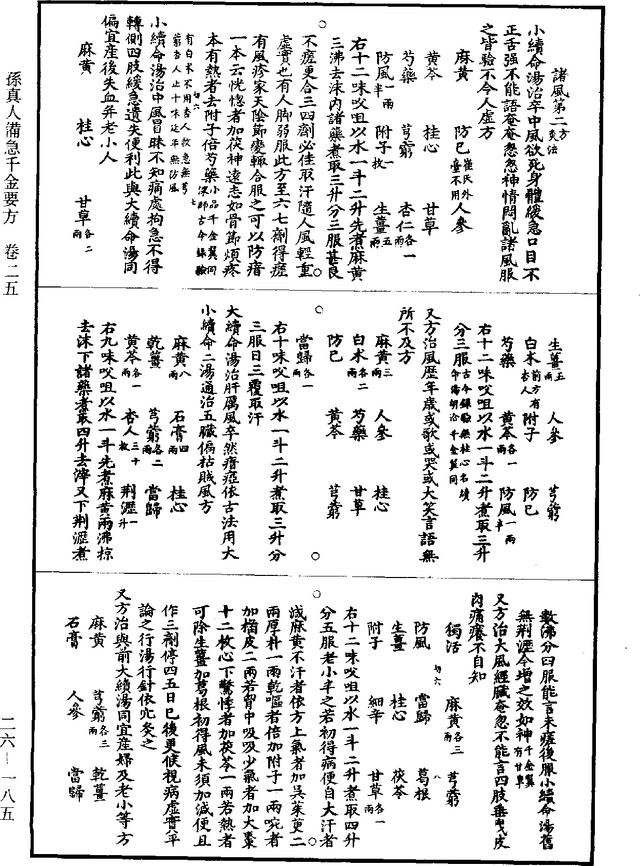 諸風第二方灸法
小續命湯治卒中風欲死身體緩急口目不
正舌強不能語奄奄忽忽神情悶亂諸風服
之皆驗不令人虛方
麻黃 防己崔氏外臺不用 人參
黃芩 桂心 甘草
芍藥 芎藭 杏仁各一兩
防風一兩半 附子一枚 生薑五兩
右十二味㕮咀以水一斗二升先煮麻黃
三沸去沫內諸藥煮取三升分三服甚良
不瘥更合三四劑必佳取汗隨人風輕重
虛實也有人脚弱服此方至六七劑得瘥
有風疹家天陰節變輒合服之可以防瘖
一本云恍惚者加茯神遠志如骨節煩疼
本有熱者去附子倍芍藥小品千金翼同深師古今錄驗
有白朮不用杏人救急無芎藭杏人止十味延年無防風
小續命湯治中風冒昧不知痛處拘急不得
轉側四肢緩急遺失便利此與大續命湯同
偏宜產後失血并老小人
麻黃 桂心 甘草各二兩
生薑五兩 人參 芎藭
白朮前方有杏人 附子 防己
芍藥 黃芩各一兩 防風一兩半
右十二味㕮咀以水一斗二升煮取三升
分三服古今錄驗無桂心名續命湯胡洽千金翼同
又方治風歷年歲或歌或哭或大笑言語無
所不及方
麻黃三兩 人參 桂心
白朮各二兩 芍藥 甘草
防己 黃芩 芎藭
當歸各一兩
右十味㕮咀以水一斗二升煮取三升分
三服日三覆取汗
大續命湯治肝厲風卒然瘖瘂依古法用大
小續命二湯通治五臟偏枯賊風方
麻黃八兩 石膏四兩 桂心
乾薑 芎藭各二兩 當歸
黃芩各一兩 杏人三十枚 荊瀝一升
右九味㕮咀以水一斗先煮麻黃兩沸掠
去沫下諸藥煮取四升去滓又下荊瀝煮
數沸分四服能言未瘥後服小續命湯舊
無荊瀝今增之效如神千金翼有甘草
又方治大風經臟奄忽不能言四肢垂曳皮
肉痛癢不自知
獨活 麻黃各三兩 芎藭
防風 當歸 葛根
生薑 桂心 茯苓
附子 細辛 甘草各一兩
右十二味㕮咀以水一斗二升煮取四升
分五服老小半之若初得病便自大汗者
減麻黃不汗者依方上氣者加吳茱萸二
兩厚朴一兩乾嘔者倍加附子一兩啘者
加橘皮二兩若胷中吸吸少氣者加大棗
十二枚心下驚悸者加茯苓一兩若熱者
可除生薑加葛根初得風未須加減便且
作三劑停四五日已後更候視病虛實平
論之行湯行針依穴灸之
又方治與前大續湯同宜產婦及老小等方
麻黃 芎藭各三兩 乾薑
石膏 人參 當歸
孫真人備急千金要方 卷二五
二六—一八五